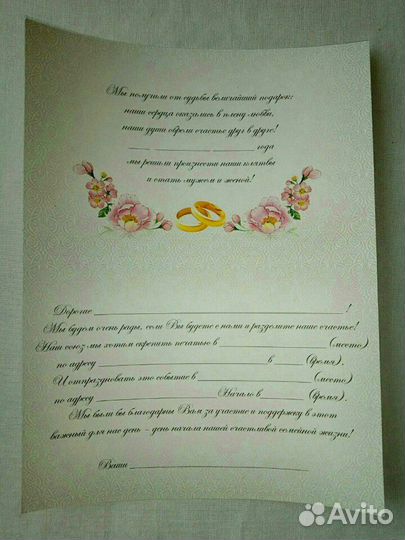 Мы получили от судьбы величайший подарок:
наши сердца оказались в плену любви,
наши души обрели счастье друг в друге!
____________________ года
мы решили произнести наши клятвы
и стать мужем и женой!
Дорогие ________________________________________!
Мы будем очень рады, если Вы будете с нами и разделите наше счастье!
Наш союз мы хотим скрепить печатью в ____________________ (место)
по адресу ____________________________ в ______ (время).
И отпраздновать это событие в ____________________ (место)
по адресу ____________________ Начало в ________ (время).
Мы были бы благодарны Вам за участие и поддержку в этот
важный для нас день – день начала нашей счастливой семейной жизни!
Ваши ______________________________
Avito